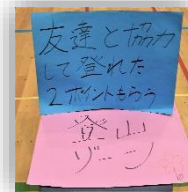 友達と協力
して登れた
2ポイントもらう
登山
ゾーン